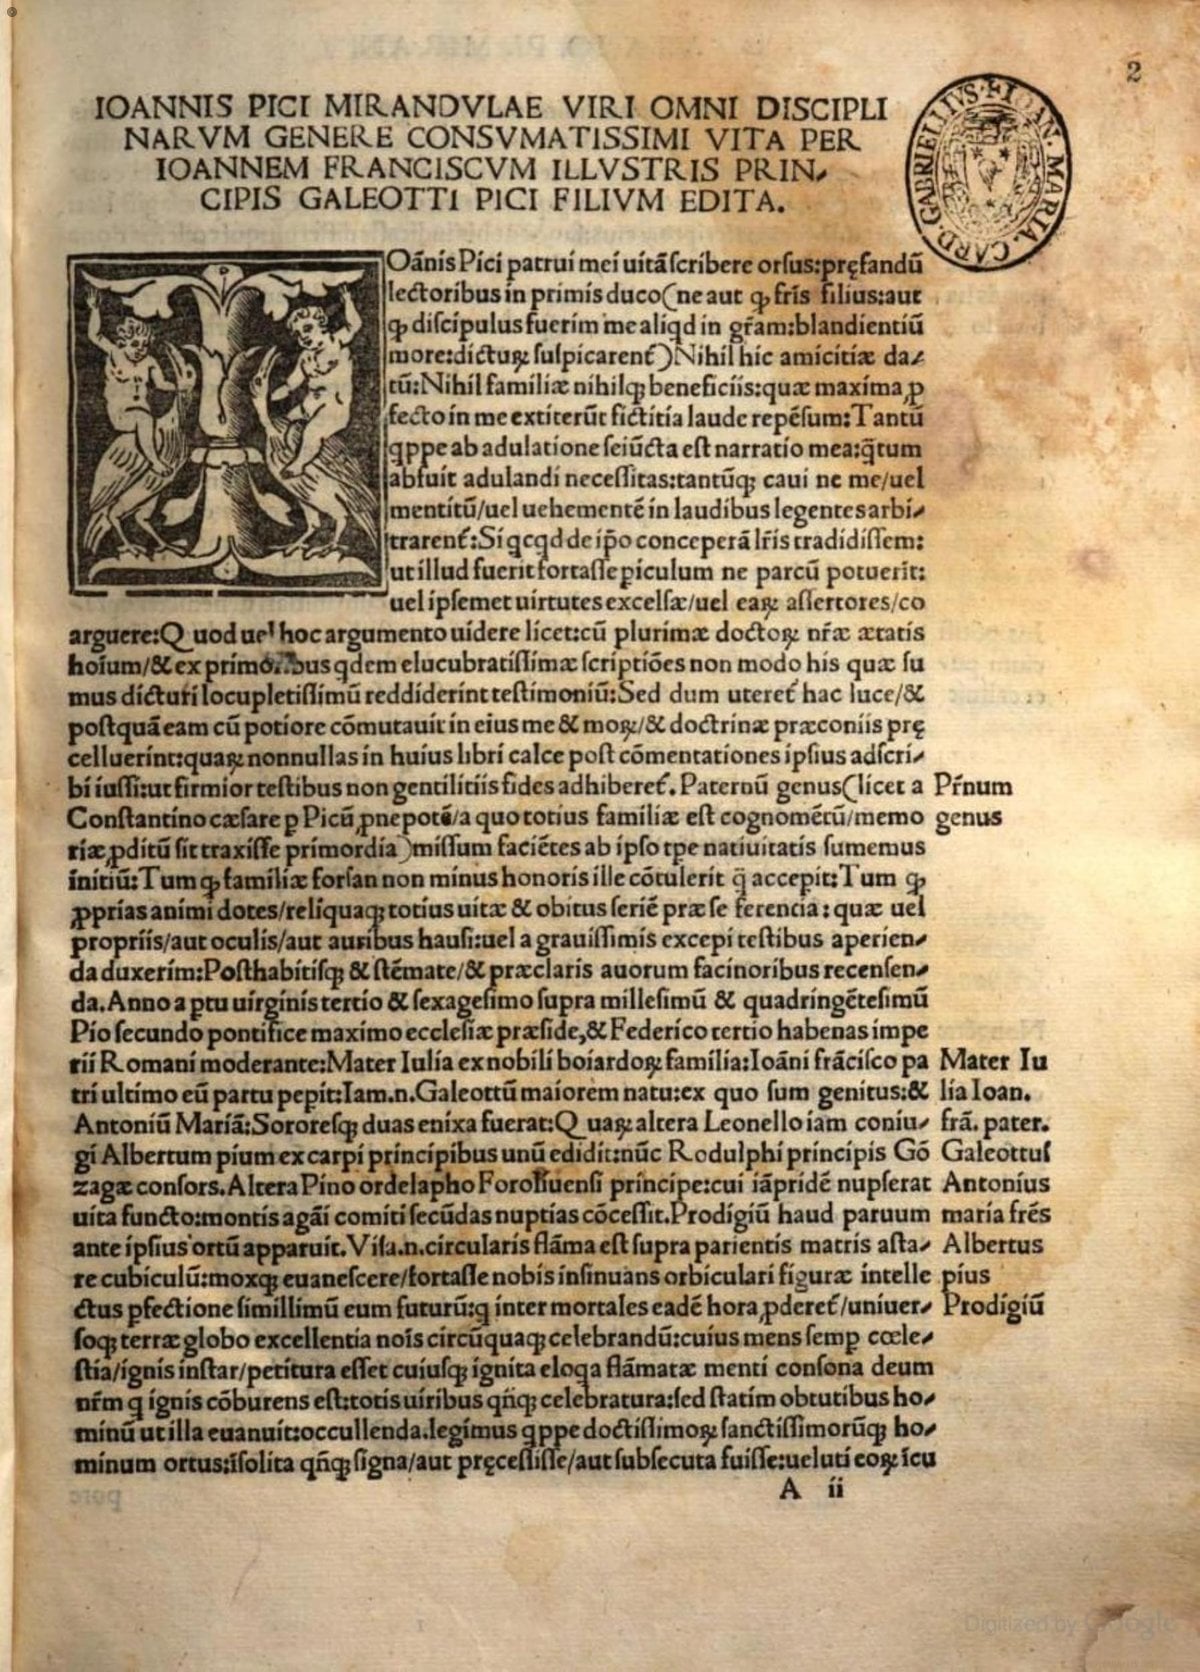 2
IOANNIS PICI MIRANDVLAE VIRI OMNI DISCIPLI
NARVM GENERE CONSVMATISSIMI VITA PER
IOANNEM FRANCISCVM ILLVSTRIS PRIN⸗
CIPIS GALEOTTI PICI FILIVM EDITA.
GABRIELLIVS·F·IOAN·MARIA·CARD·
Oānis Pici patrui mei uitā scribere orsus:pręfandū
lectoribus in primis duco(ne aut ꝙ fr̄is filius:aut
ꝙ discipulus fuerim me aliqd in gr̄am:blandientiū
more:dictuꝝ suspicarent᷑)Nihil hic amicitiæ da⸗
tū:Nihil familiæ nihilqꝫ beneficiis:quæ maxima ꝓ
fecto in me extiterūt fictitia laude repēsum:Tantū
qppe ab adulatione seiūcta est narratio mea:q̄tum
abfuit adulandi necessitas:tantūqꝫ caui ne me/uel
mentitū/uel uehementē in laudibus legentes arbi⸗
trarent᷑:Si qcqd de ip̄o conceperā lr̄is tradidissem:
ut illud fuerit fortasse piculum ne parcū potuerit:
uel ipsemet uirtutes excelsæ/uel eaꝝ assertores/co
arguere:Quod uel hoc argumento uidere licet:cū plurimæ doctoꝝ nr̄æ ætatis
hoīum/& ex primoribus qdem elucubratissimæ scriptiōes non modo his quæ su
mus dicturi locupletissimū reddiderint testimoniū:Sed dum uteret᷑ hac luce/&
postquā eam cū potiore cōmutauit in eius me & moꝝ/& doctrinæ præconiis prę
celluerint:quaꝝ nonnullas in huius libri calce post cōmentationes ipsius adscri⸗
bi iussi:ut firmior testibus non gentilitiis fides adhiberet᷑. Paternū genus(licet a
Pr̄num
Constantino cæsare ꝑ Picū ꝓnepotē/a quo totius familiæ est cognomētū/memo
genus
riæ ꝓditū sit traxisse primordia)missum faciētes ab ipso tꝑe natiuitatis sumemus
initiū:Tum ꝙ familiæ forsan non minus honoris ille cōtulerit q̄ accepit:Tum ꝙ
ꝓprias animi dotes/reliquaqꝫ totius uitæ & obitus seriē præ se ferencia:quæ uel
propriis/aut oculis/aut auribus hausi:uel a grauissimis excepi testibus aperien⸗
da duxerim:Posthabitisqꝫ & stēmate/& præclaris auorum facinoribus recensen⸗
da.Anno a ꝑtu uirginis tertio & sexagesimo supra millesimū & quadringētesimū
Pio secundo pontifice maximo ecclesiæ præside,& Federico tertio habenas impe
rii Romani moderante:Mater Iulia ex nobili boiardoꝝ familia:Ioāni frācisco pa
Mater Iu
tri ultimo eū partu pepit:Iam.n.Galeottū maiorem natu:ex quo sum genitus:&
lia Ioan.
Antoniū Mariā:Sororesqꝫ duas enixa fuerat:Quaꝝ altera Leonello iam coniu⸗
frā. pater.
gi Albertum pium ex carpi principibus unū edidit:nūc Rodulphi principis Gō
Galeottus
zagæ consors.Altera Pino ordelapho Foroliuensi principe:cui iāpridē nupserat
Antonius
uita functo:montis agāi comiti secūdas nuptias cōcessit.Prodigiū haud paruum
maria frēs
ante ipsius ortū apparuit.Visa.n.circularis flāma est supra parientis matris asta⸗
Albertus
re cubiculū:moxqꝫ euanescere/fortasse nobis insinuans orbiculari figuræ intelle
pius
ctus ꝑfectione simillimū eum futurū:q inter mortales eadē hora ꝓderet᷑/uniuer⸗
Prodigiū
soqꝫ terræ globo excellentia nōis circūquaqꝫ celebrandū:cuius mens semꝑ cœle⸗
stia/ignis instar/petitura esset cuiusqꝫ ignita eloqa flāmatæ menti consona deum
nr̄m q ignis cōburens est:totis uiribus qn̄qꝫ celebratura:sed statim obtutibus ho⸗
minū ut illa euanuit:occullenda.legimus qppe doctissimoꝝ sanctissimorūqꝫ ho⸗
minum ortus:īsolita qn̄qꝫ signa/aut pręcessisse/aut subsecuta fuisse:ueluti eoꝝ īcu
A ii
Digitized by Google